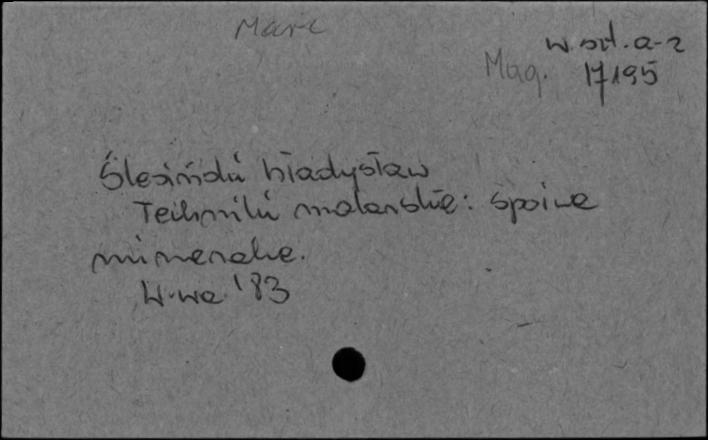 Marc
w. szt. a-z
Mag. 17195
Ślesiński Władysław
Techniki malarskie: spoiwa
mineralne.
W-wa '83